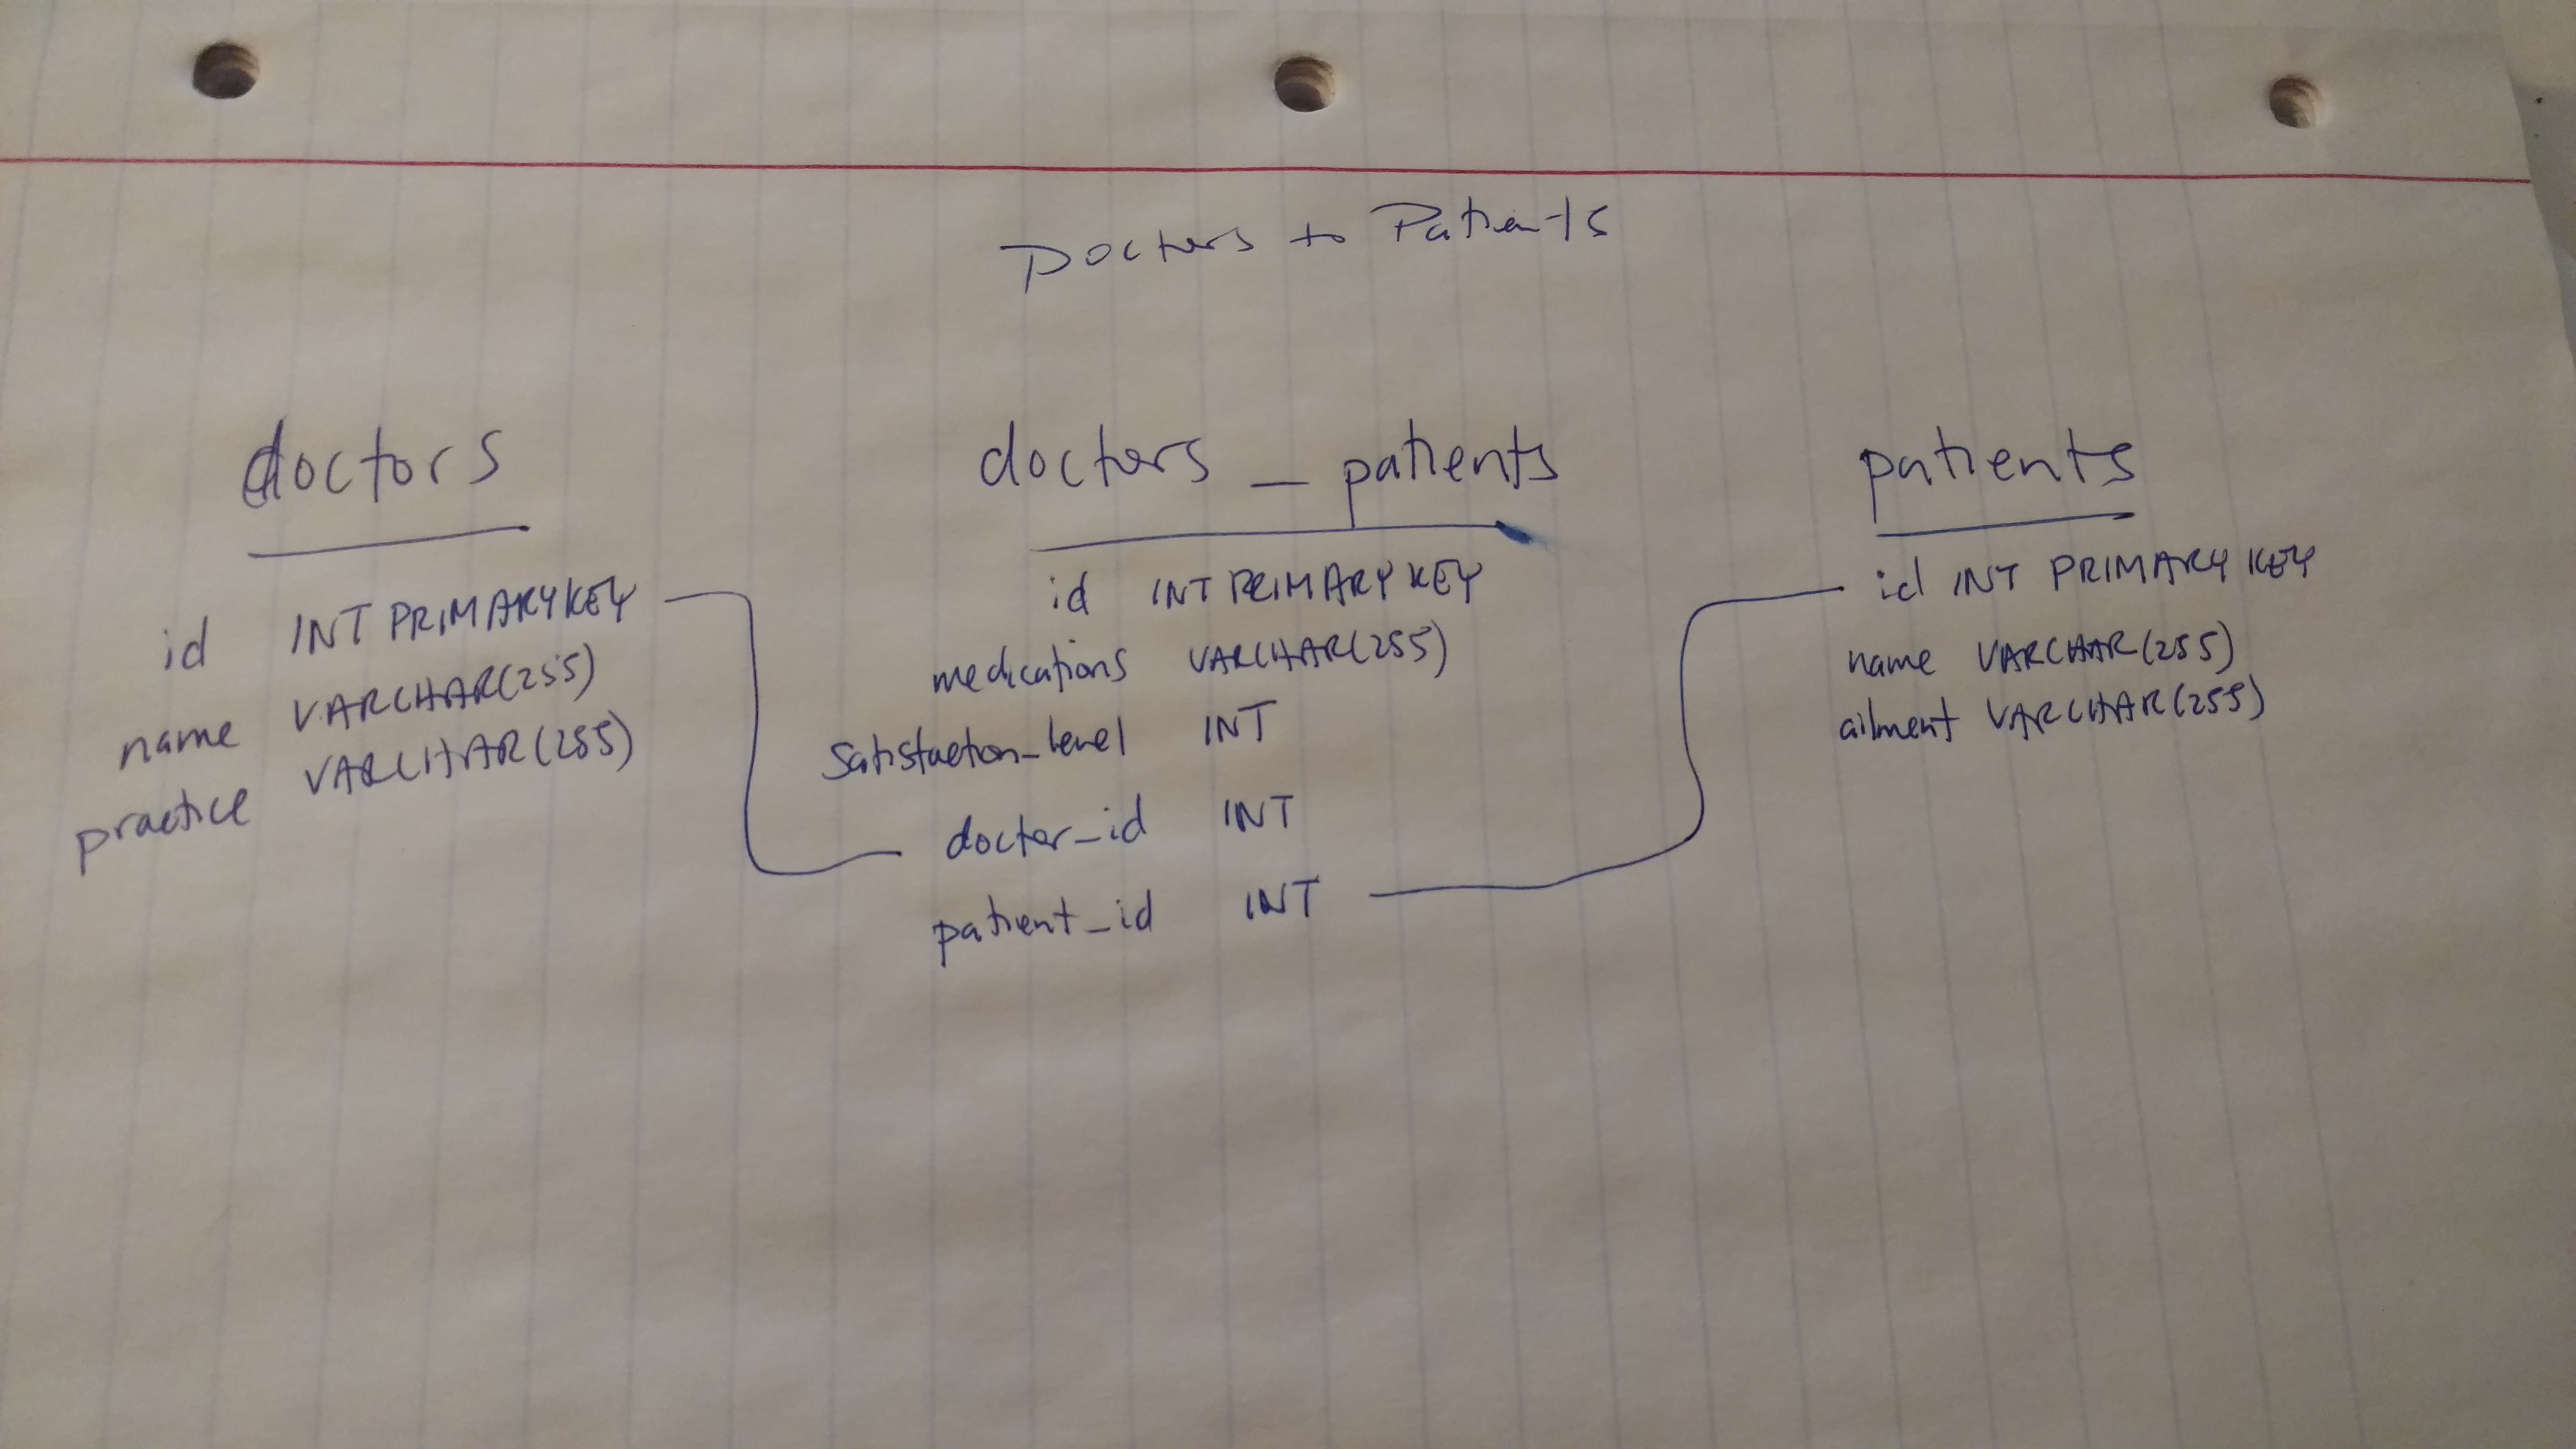 Doctors to Patients
doctors
id INT PRIMARY KEY
name VARCHAR(255)
practice VARCHAR(255)
doctors_patients
id INT PRIMARY KEY
medications VARCHAR(255)
Satisfaction_level INT
doctor_id INT
patient_id INT
patients
id INT PRIMARY KEY
name VARCHAR(255)
ailment VARCHAR(255)